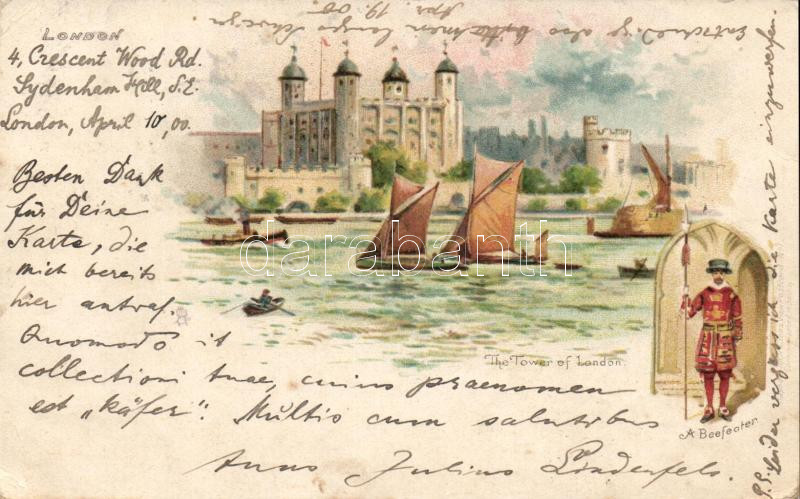 LONDON
4, Crescent Wood Rd.
Sydenham Hill, S.E.
London, April 10, 00.
Besten Dank
für Deine
Karte, die
mich bereits
hier antraf.
Quomodo it
collectioni tuae, cuius praenomen
est „Käfer“. Multis cum salutibus
Julius Lindenfels.
The Tower of London.
A Beefeater.
P.S. Leider vergass ich die Karte einzuwerfen.
also bitte
Apr. 19. 00.
darabanth